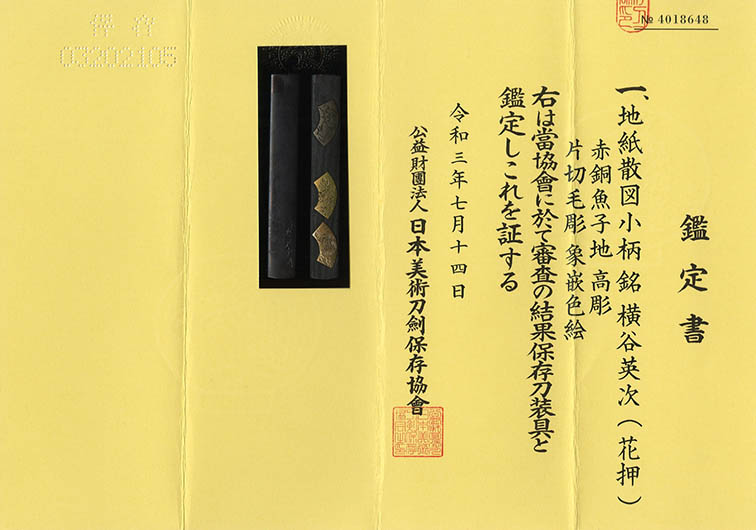 № 4018648
保存
03202105
鑑定書
一、地紙散図小柄 銘 横谷英次(花押)
赤銅魚子地 高彫
片切毛彫 象嵌色絵
右は當協會に於て審査の結果保存刀装具と
鑑定しこれを証する
令和三年七月十四日
公益財團法人 日本美術刀劍保存協會